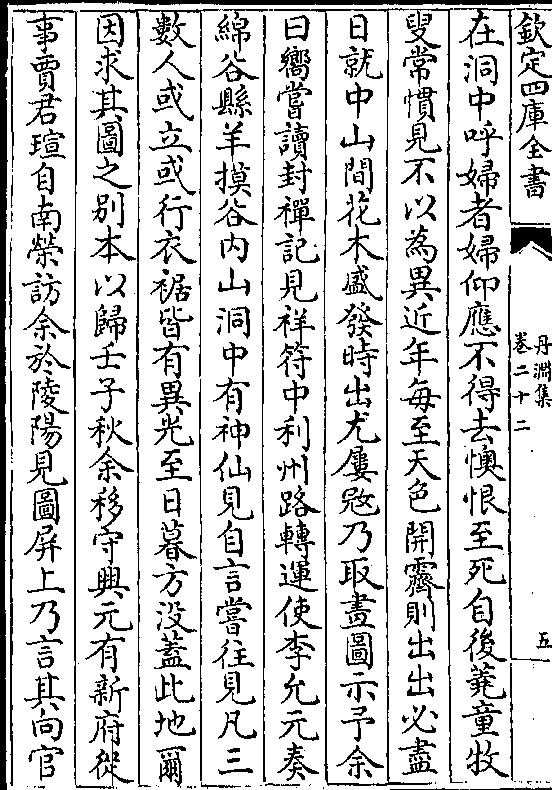 欽定四庫全書
丹淵集
卷二十二
五
在洞中呼婦者婦仰應不得去懊恨至死自後蕘童牧
叟常慣見不以為異近年每至天色開霽則出出必盡
日就中山間花木盛發時出尤屢愍乃取畫圖示予余
曰嚮嘗讀封禪記見祥符中利州路轉運使李允元奏
綿谷縣羊摸谷內山洞中有神仙見自言嘗往見凡三
數人或立或行衣裾皆有異光至日暮方没蓋此地爾
因求其圖之別本以歸壬子秋余移守興元有新府從
事賈君瑄自南榮訪余於陵陽見圖屏上乃言其向官